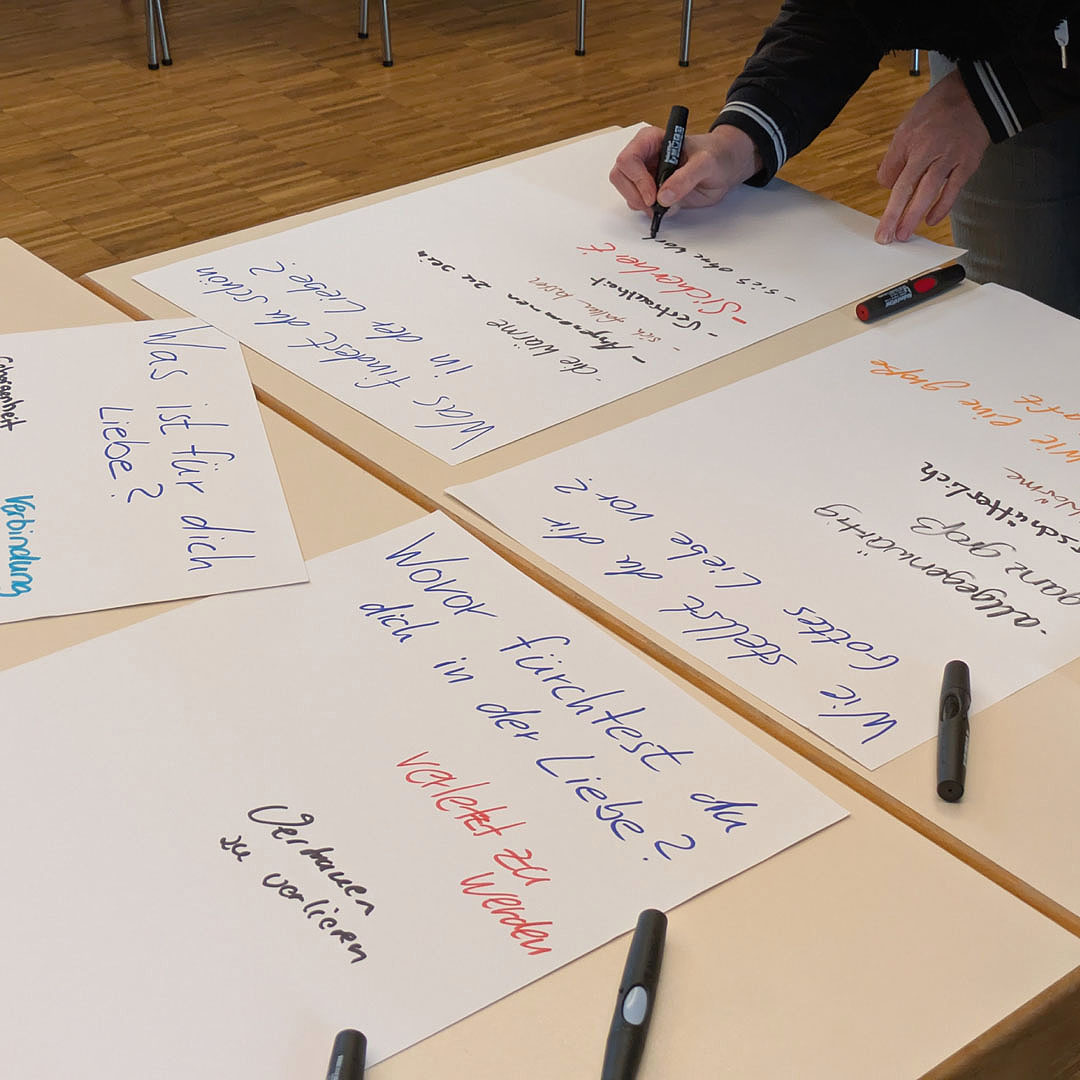 Was findest du schön
in der Liebe?
- die Wärme
- Angenommen zu sein
- sich fallen lassen
- Vertrautheit
- Sicherheit
Was ist für dich
Liebe?
Geborgenheit
Verbindung
Wie stellst du dir
Gottes Liebe vor?
- allgegenwärtig
ganz groß
wie eine große
Wovor fürchtest du
dich in der Liebe?
verletzt zu
werden
Vertrauen
zu verlieren